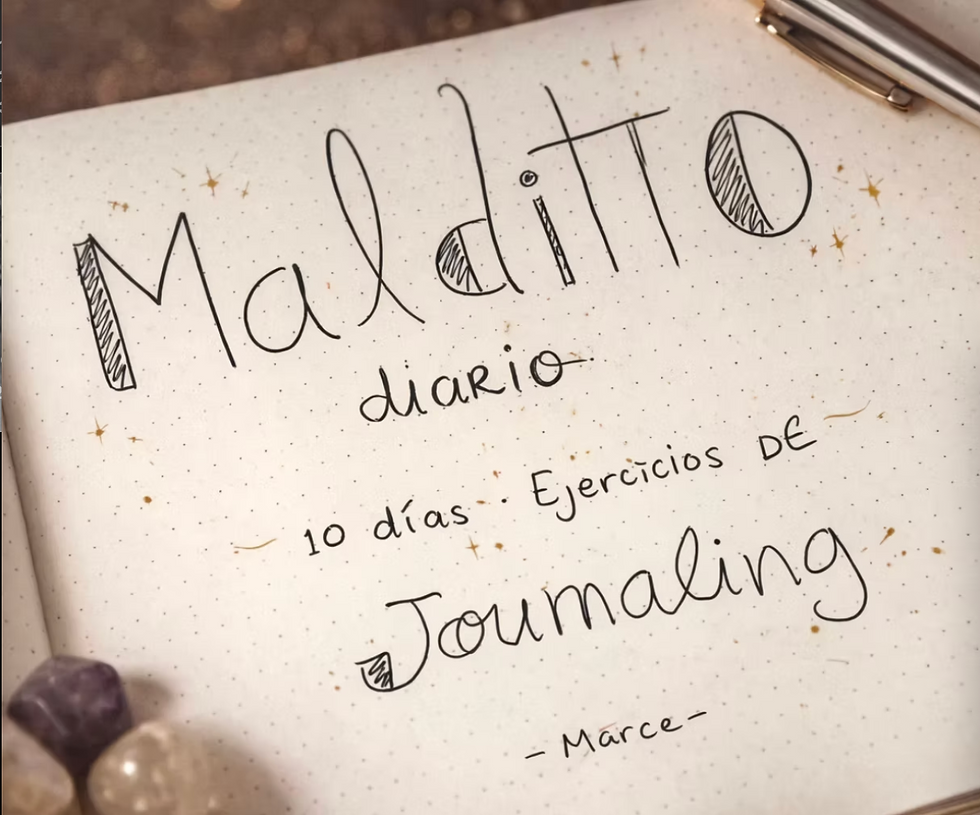 MaldiTTO
diario
10 días · Ejercicios DE
Journaling
- Marce -